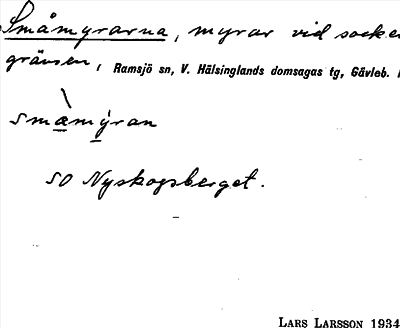 Småmyrarna, myrar vid socken
gränsen, Ramsjö sn, V. Hälsinglands domsagas tg, Gävleb.
smàmýran
SO Nyskogsberget.
LARS LARSSON 1934